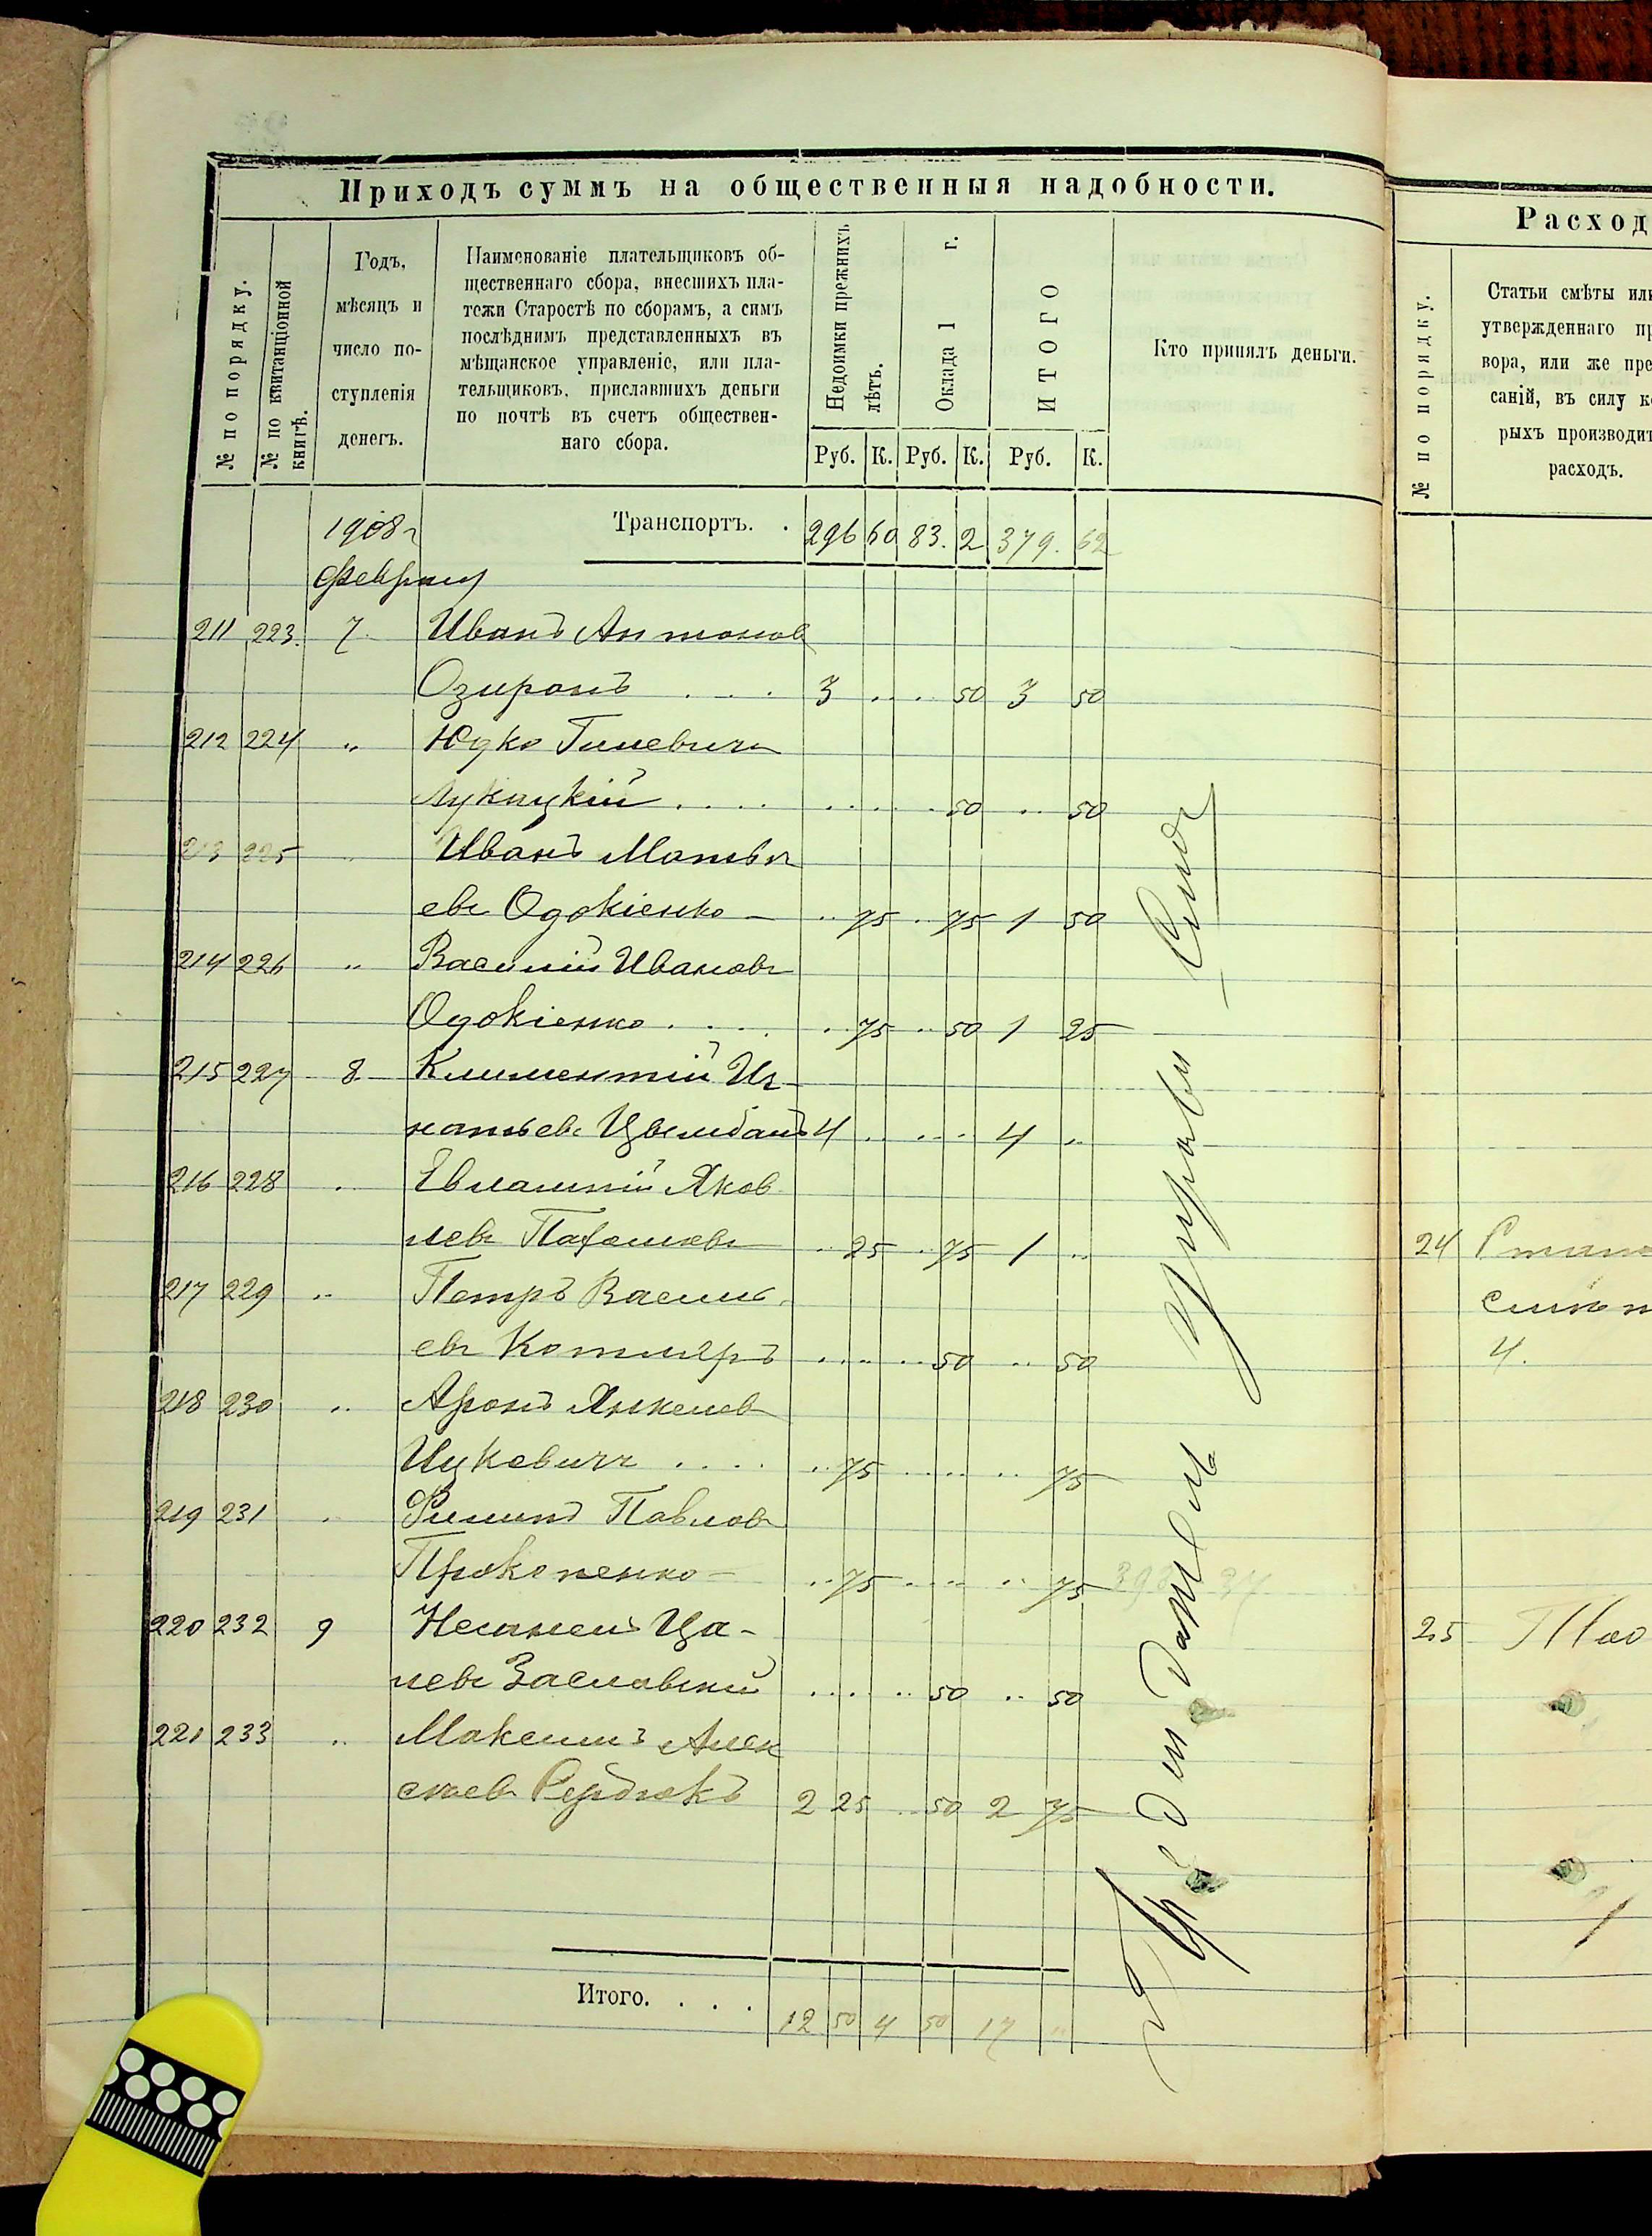 Приходъ суммъ на общественныя надобности.
№ по порядку.
№ по квитанціонной книгѣ.
Годъ,
мѣсяцъ и
число по-
ступленія
денегъ.
Наименованіе плательщиковъ об-
щественнаго сбора, внесшихъ пла-
тежи Старостѣ по сборамъ, а симъ
послѣднимъ представленныхъ въ
мѣщанское управленіе, или пла-
тельщиковъ, приславшихъ деньги
по почтѣ въ счетъ обществен-
наго сбора.
Недоимки прежнихъ лѣтъ.
Оклада 1 г.
ИТОГО
Кто принялъ деньги.
Руб. К. Руб. К. Руб. К.
1908 г Транспортъ. . 296 60 83. 2 379. 62
Февраля
211 223. 7. Иванъ Антоновъ
Озиранъ . . . 3 .. .. 50 3 50
212 224 " Юдко Гилевичъ
Лукацкій . . . . .. .. .. 50 .. 50
213 225 " Иванъ Матвѣ
евъ Одокіенко — .. 75 .. 75 1 50
214 226 " Василій Ивановъ
Одокіенко . . . . .. 75 .. 50 1 25
215 227 8 Климентій Иг-
натьевъ 4 .. .. .. 4 ..
216 228 " Евлампій Яков
левъ .. 25 .. 75 1 ..
217 229 " Петръ Василь
евъ Котляръ .. .. .. 50 .. 50
218 230 " Аронъ Янкелев
Ицковичъ . . . . .. 75 .. .. .. 75
219 231 " Филипъ Павловъ
Прокопенко — .. 75 .. .. .. 75
220 232 9 Ца-
левъ Заславскій .. .. .. 50 .. 50
221 233 " Максимъ Алек
сѣевъ Сердюкъ 2 25 .. 50 2 75
Итого. . . . 12 50 4 50 17 "
Предсѣдатель Управы
Расход
№ по порядку.
Статьи смѣты или
утвержденнаго пр
вора, или же пре
саній, въ силу к
рыхъ производит
расходъ.
24
4.
25